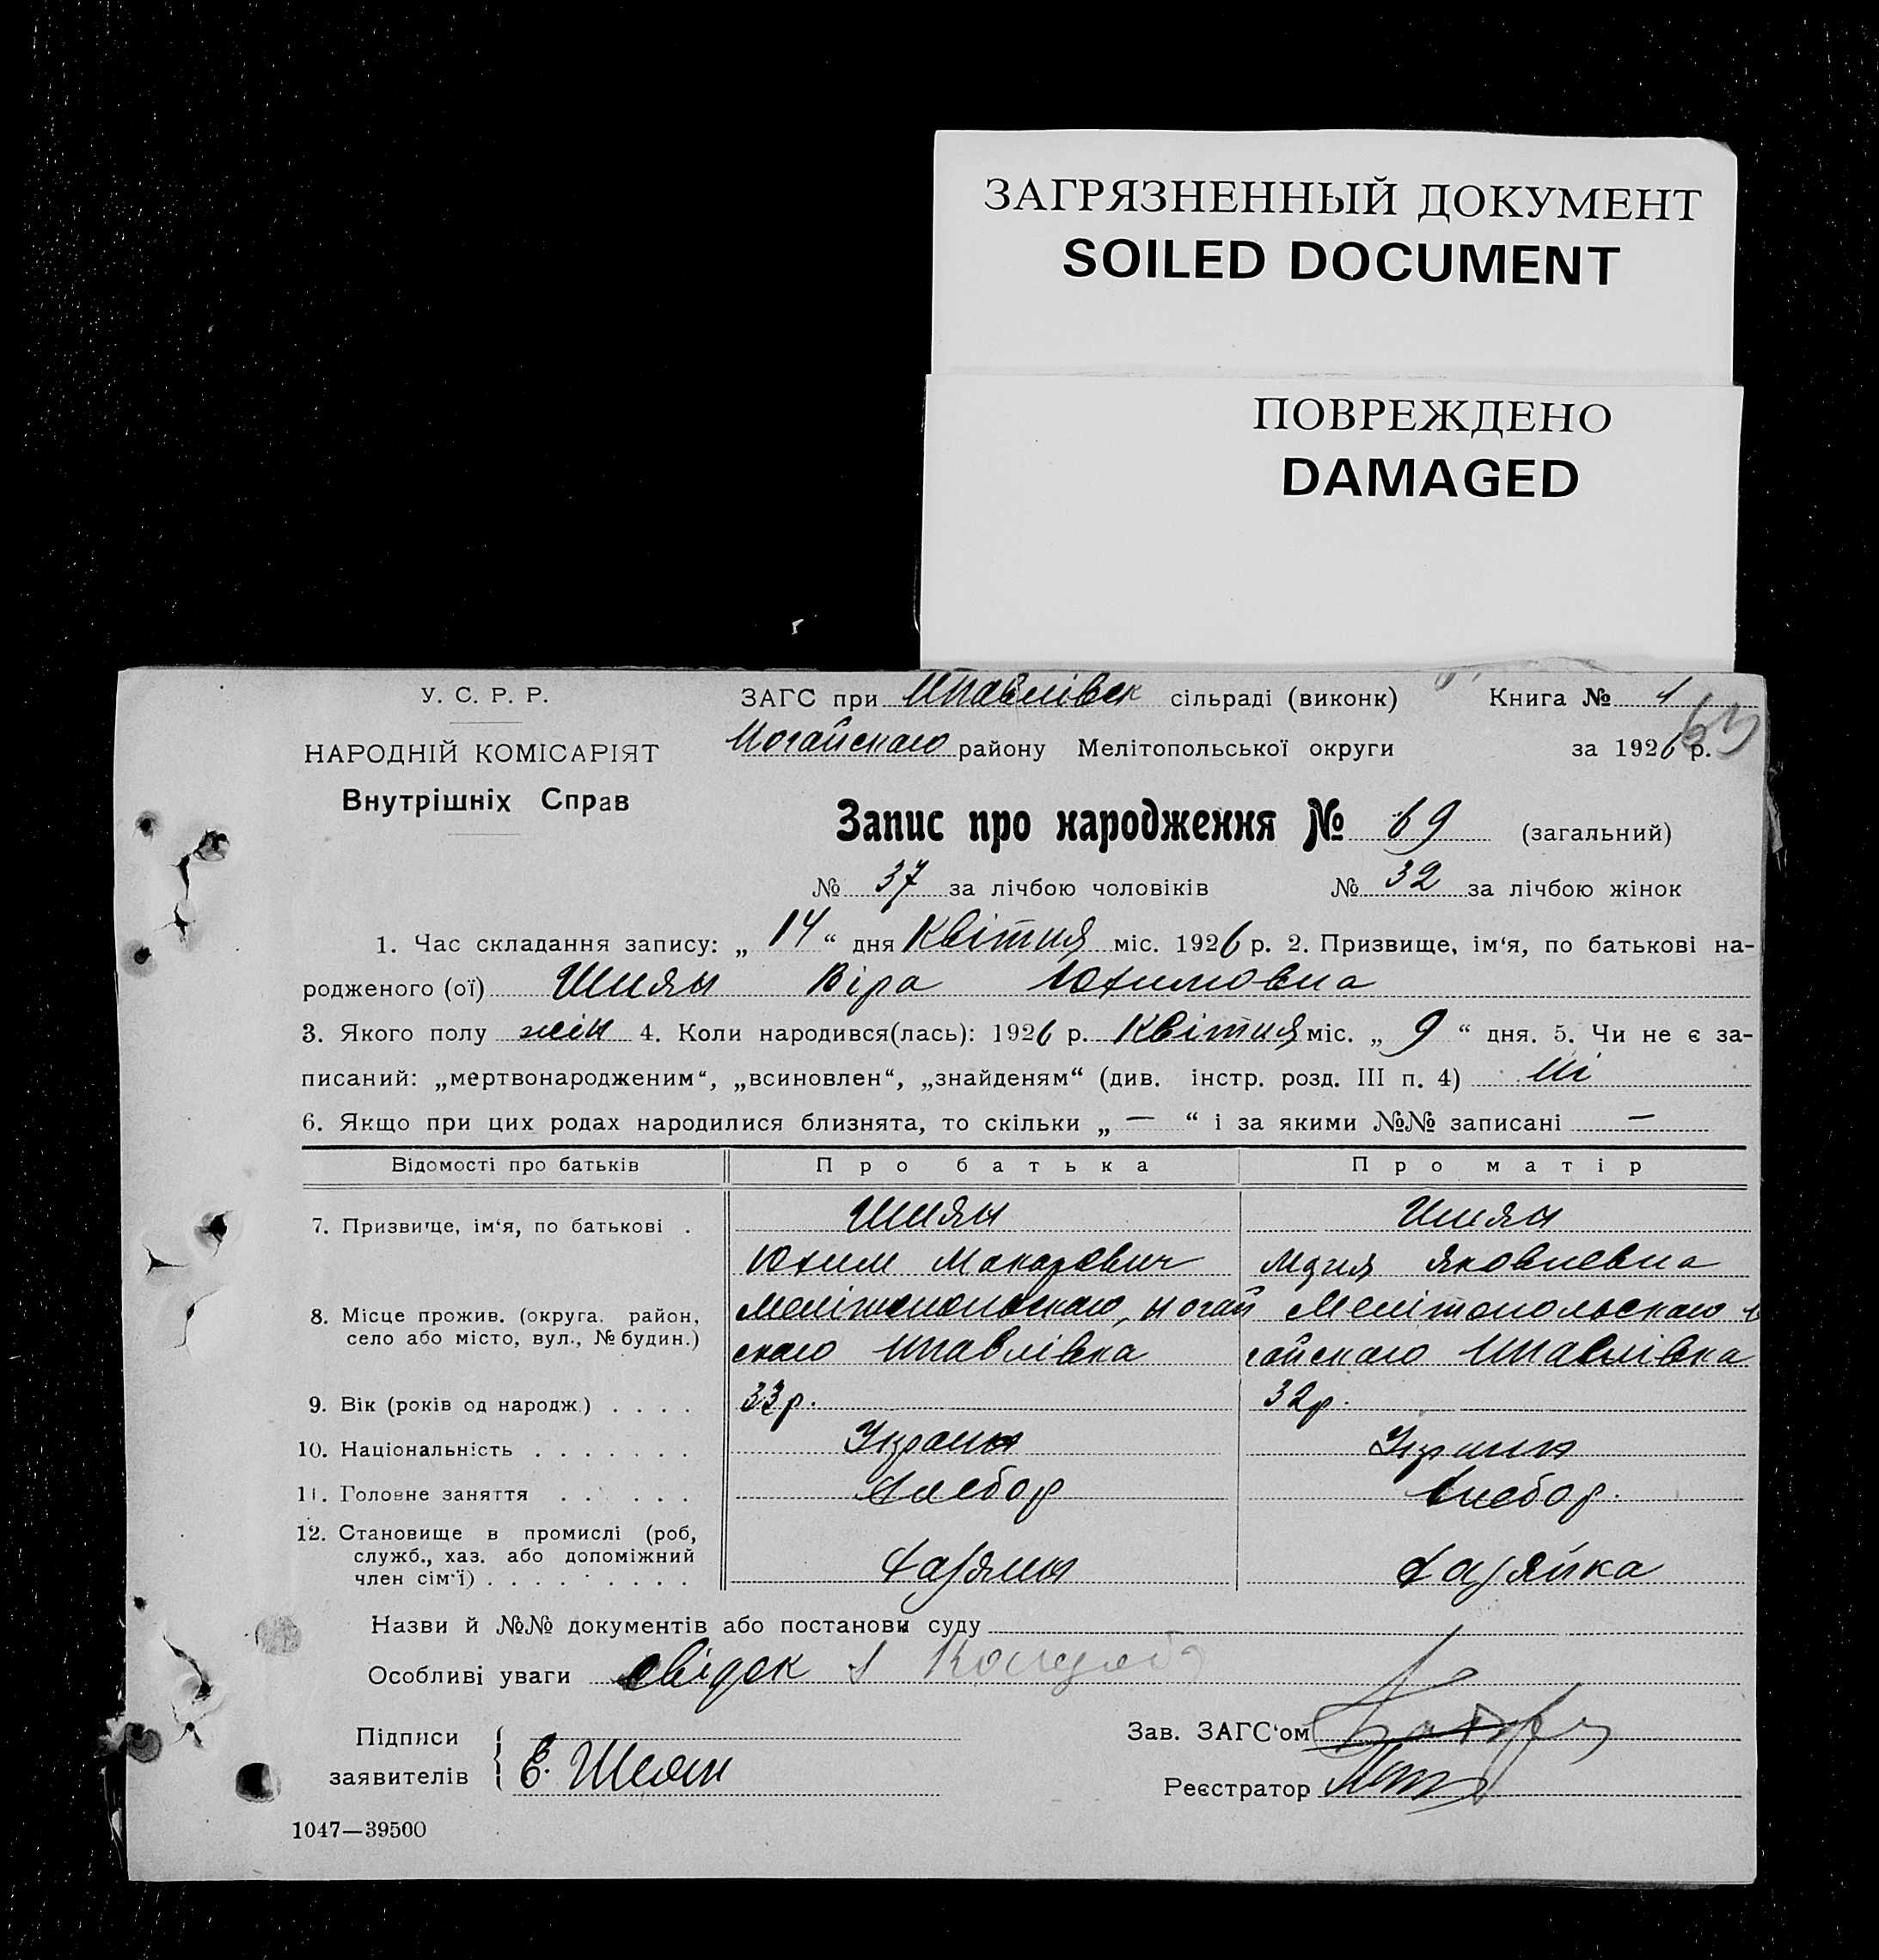 ЗАГРЯЗНЕННЫЙ ДОКУМЕНТ
SOILED DOCUMENT
ПОВРЕЖДЕНО
DAMAGED
У. С. Р. Р.
НАРОДНІЙ КОМІСАРІЯТ
Внутрішніх Справ
ЗАГС при Мпавлівск сільраді (виконк) Книга № 1
63
Ногайскаго району Мелітопольської округи за 1926 р.
Запис про народження № 69 (загальний)
№ 37 за лічбою чоловіків № 32 за лічбою жінок
1. Час складання запису: „ 14 “ дня Квітня міс. 1926 р. 2. Призвище, ім‘я, по батькові на-
родженого (ої) Шиян Віра Юхимовна
3. Якого полу жін 4. Коли народився(лась): 1926 р. Квітня міс. „ 9 “ дня. 5. Чи не є за-
писаний: „мертвонародженим“, „всиновлен“, „знайденям“ (див. інстр. розд. III п. 4) Ні
6. Якщо при цих родах народилися близнята, то скільки „ — “ і за якими №№ записані —
Відомості про батьків Про батька Про матір
7. Призвище, ім‘я, по батькові . Шиян Шиян
Юхим Макарович Яковлевна
8. Місце прожив. (округа. район, Мелітопольскаго, ногай Мелітопольскаго
село або місто, вул., № будин.) скаго Мпавлівка гайскаго Мпавлівка
9. Вік (років од народж.) . . . . 33р. 32р.
10. Національність . . . . . . . Україн Україн
11. Головне заняття . . . . . . Хлебор Хлебор.
12. Становище в промислі (роб,
служб., хаз. або допоміжний
член сім‘ї) . . . . . . . . . Хазяин Хазяйка
Назви й №№ документів або постанови суду
Особливі уваги свідок
Підписи
заявителів Е. Шиян
Зав. ЗАГС‘ом
Реєстратор
1047—39500